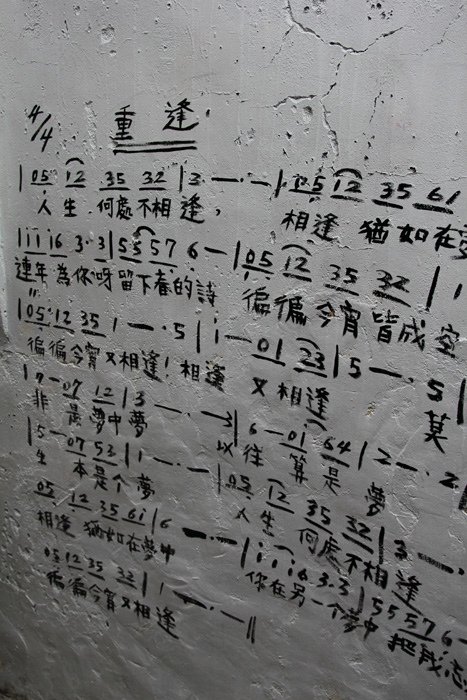 4/4 重逢
|05 12 35 32|3·—·—|·05 12 35 61
人生何處不相逢, 相逢猶如在夢
|1116 3·3|5557 6—|05 12 35 32|1
連年為你呀留下春的詩 徧徧今宵皆成空
|05 12 35 1—·5|1—01 23|5—·5
徧徧今宵又相逢! 相逢 又相逢 莫
07 12|3—·—3|6—01 64|2—·2
非是夢中夢 以往算是夢
|5—07 53|1—·—|05 12 35 32|3—
生本是个夢 人生何處不相逢
05 12 35 61|6—·—|1116 3·3|5557 6—
相逢猶如在夢中 你在另一个夢中 把我忘
05 12 35 32|1—·—||
徧徧今宵又相逢